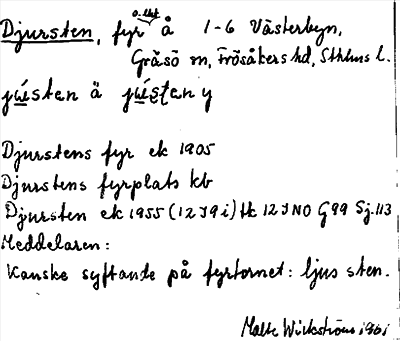 Djursten, fyr o. lht å 1-6 Västerbyn,
Gräsö sn, Frösåkers hd, Sthlms l.
jẉịsten ä jẉịsten y
Djurstens fyr ek 1905
Djurstens fyrplats kb
Djursten ek 1955 (12J9i) tk 12J NO G99 Sj. 113
Meddelaren:
Kanske syftande på fyrtornet: ljus sten.
Malte Wickström 1961